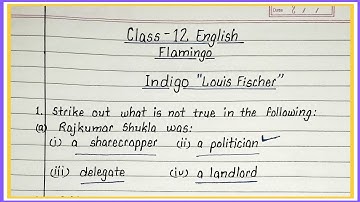 Date
Class-12 English
Flamingo
Indigo "Louis Fischer"
1. Strike out what is not true in the following:
(a) Rajkumar Shukla was:
(i) a sharecropper (ii) a politician ✓
(iii) delegate (iv) a landlord